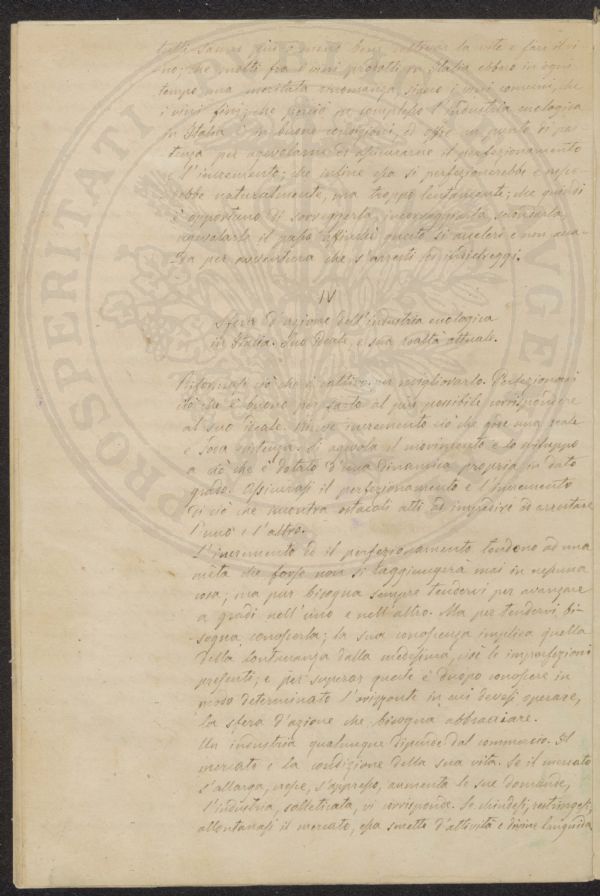 tutti sanno più o meno bene coltivar la vite e fare il vi-
no; che molti fra i vini prodotti in Italia ebbero in ogni
tempo una meritata rinomanza, sieno i vini comuni, che
i vini fini; che perciò in complesso l'industria enologica
in Italia è in buone condizioni, ed offre un punto di par-
tenza per agevolarne ed assicurarne il perfezionamento
e l'incremento; che infine essa si perfezionerebbe e
naturalmente, ma troppo lentamente; che quindi
è opportuno il sorreggerla, incoraggiarla, secondarla,
agevolarle il passo affinchè questo si acceleri e non
per avventura che s'arresti od indietreggi.
IV
Sfera d'azione dell'industria enologica
in Italia. Suo ideale e sua realtà attuale.
Riformasi ciò che è cattivo per migliorarlo. Perfezionasi
ciò che è buono per farlo al più possibile corrispondere
al suo ideale. Riceve incremento ciò che gode una reale
e soda esistenza. Si agevola il movimento e lo sviluppo
a ciò che è dotato d'una dinamica propria in dato
grado. Assicurasi il perfezionamento e l'incremento
di ciò che incontra ostacoli atti ad impedire od arrestare
l'uno e l'altro.
L'incremento ed il perfezionamento tendono ad una
mèta che forse non si raggiungerà mai in nessuna
cosa; ma pur bisogna sempre tendervi per avanzare
a gradi nell'uno e nell'altro. Ma per tendervi bi-
sogna conoscerla; la sua conoscenza implica quella
della lontananza dalla medesima, cioè le imperfezioni
presenti; e per superar queste è duopo conoscere in
modo determinato l'orizzonte in cui devesi operare,
la sfera d'azione che bisogna abbracciare.
Un industria qualunque dipende dal commercio. Il
mercato è la condizione della sua vita. Se il mercato
s'allarga, cresce, s'appressa, aumenta le sue domande,
l'industria, solleticata, vi corrisponde. Se chiudesi, restringesi,
allontanasi il mercato, essa smette d'attività e diviene languida
PROSPERITATI AUGE